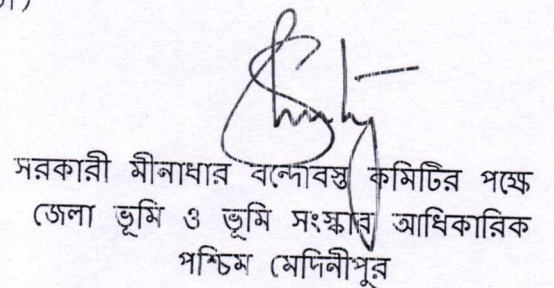 সরকারী মীনাধার বন্দোবস্ত কমিটির পক্ষে
জেলা ভূমি ও ভূমি সংস্কার আধিকারিক
পশ্চিম মেদিনীপুর